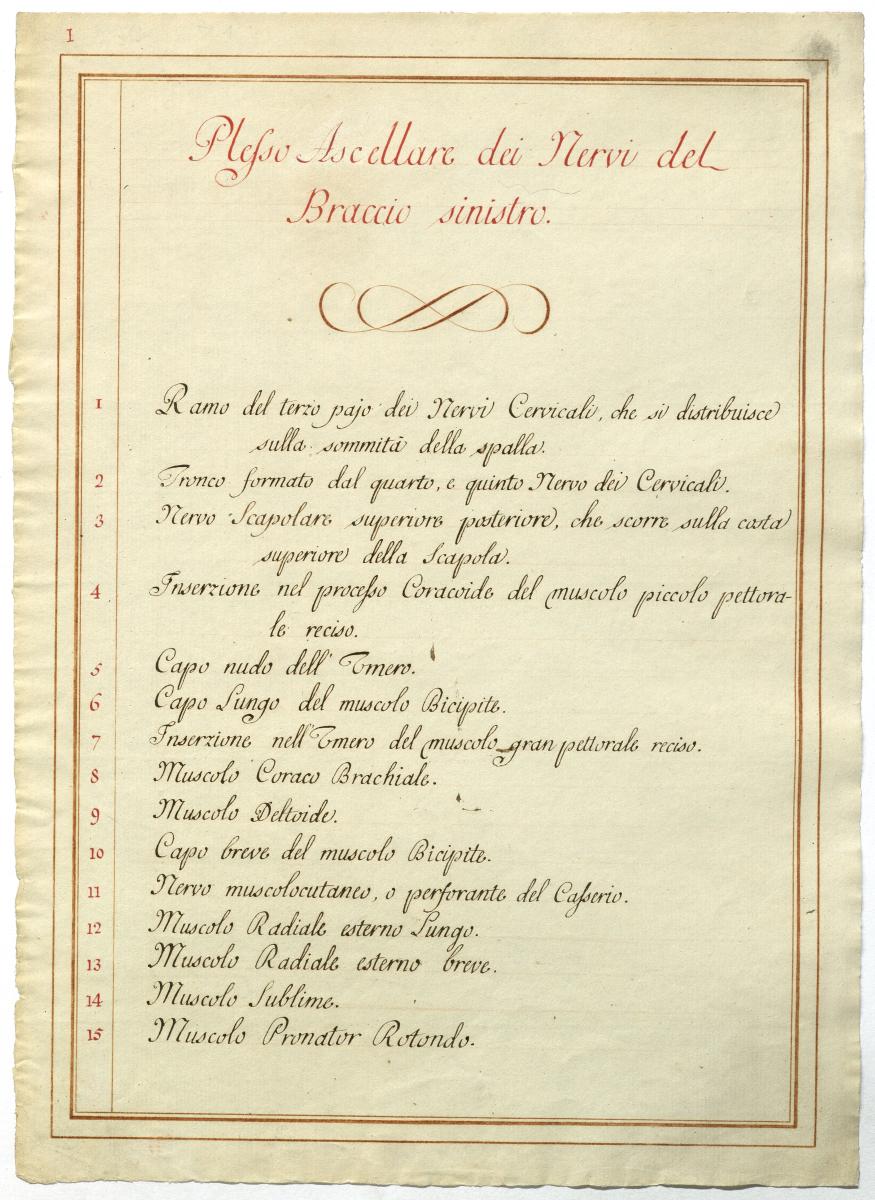 1
Plesso Ascellare dei Nervi del
Braccio sinistro.
1 Ramo del terzo pajo dei Nervi Cervicali, che si distribuisce
sulla sommità della spalla.
2 Tronco formato dal quarto, e quinto Nervo dei Cervicali.
3 Nervo Scapolare superiore posteriore, che scorre sulla costa
superiore della Scapola.
4 Inserzione nel processo Coracoide del muscolo piccolo pettora-
le reciso.
5 Capo nudo dell'Omero.
6 Capo Lungo del muscolo Bicipite.
7 Inserzione nell'Omero del muscolo gran pettorale reciso.
8 Muscolo Coraco Brachiale.
9 Muscolo Deltoide.
10 Capo breve del muscolo Bicipite.
11 Nervo muscolocutaneo, o perforante del Casserio.
12 Muscolo Radiale esterno Lungo.
13 Muscolo Radiale esterno breve.
14 Muscolo Sublime.
15 Muscolo Pronator Rotondo.